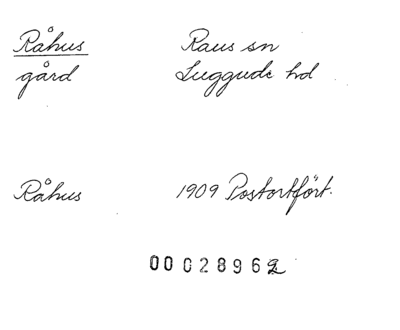 Råhus Raus sn
gård Luggude hd
Råhus 1909 Postortfört.
00028962